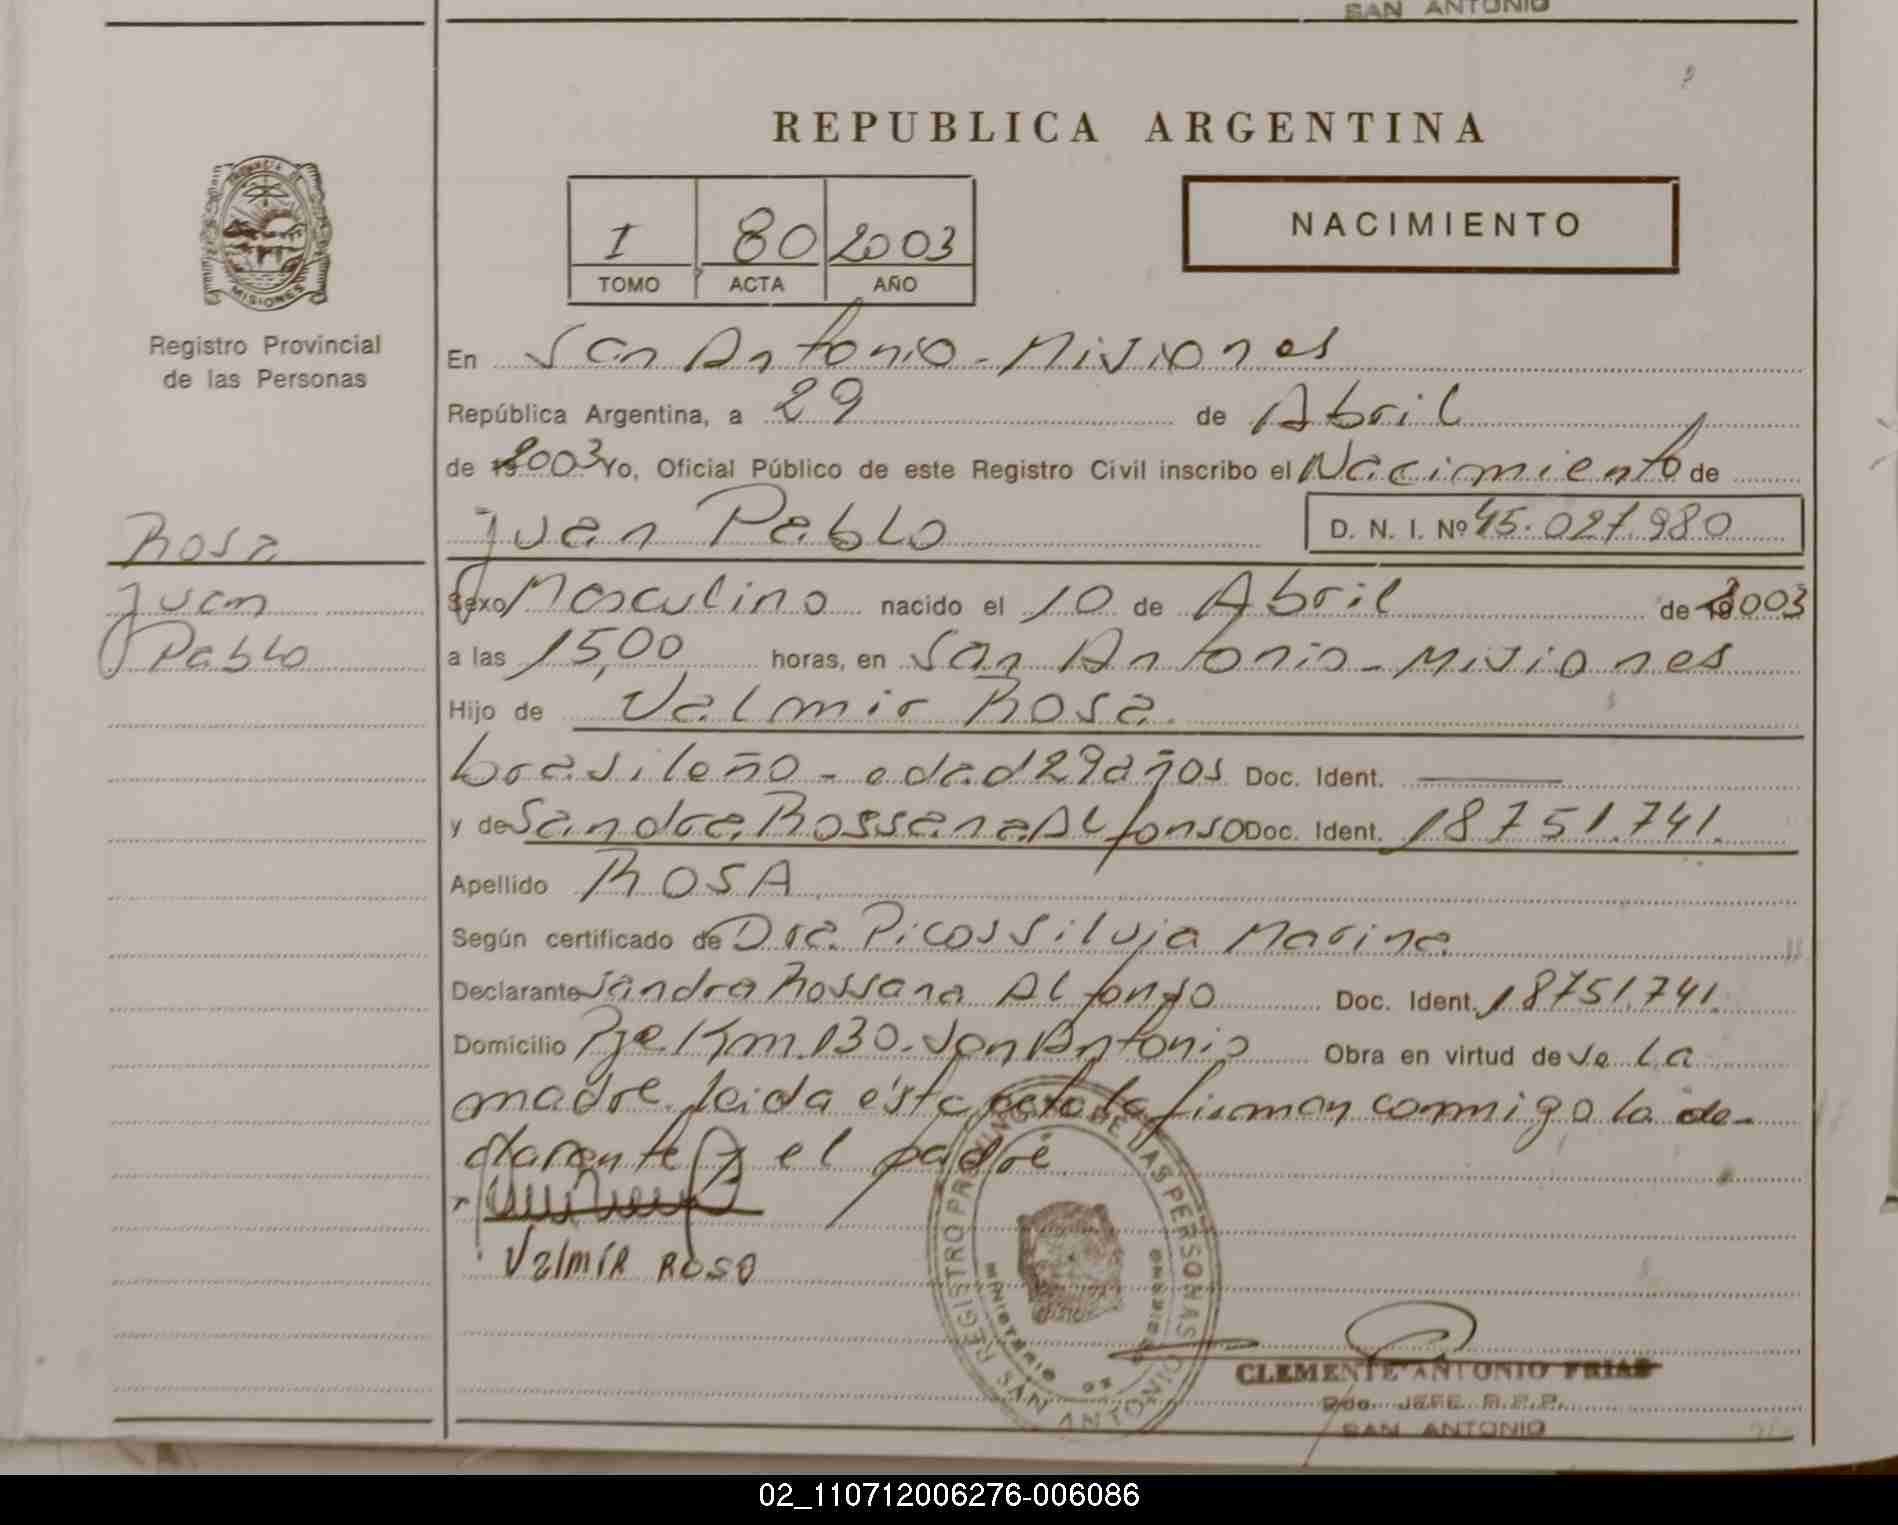 SAN ANTONIO
REPUBLICA ARGENTINA
I 80 2003
TOMO ACTA AÑO
NACIMIENTO
PROVINCIA DE
MISIONES
Registro Provincial
de las Personas
En San Antonio - Misiones
República Argentina, a 29 de Abril
de 2003 Yo, Oficial Público de este Registro Civil inscribo el Nacimiento de
Juan Pablo D. N. I. Nº 45.027.980
Rosa
Juan
Pablo
Sexo Masculino nacido el 10 de Abril de 2003
a las 15,00 horas, en San Antonio - Misiones
Hijo de Valmir Rosa
brasileño - edad 29 años Doc. Ident.
y de Sandra Rossana Alfonso Doc. Ident. 18751.741.
Apellido ROSA
Según certificado de Dra. Picos Silvia Marina
Declarante Sandra Rossana Alfonso Doc. Ident. 18751.741.
Domicilio Pje. Km. 130. San Antonio Obra en virtud de se la
madre leida ésta acta la firman conmigo la de-
clarante y el padre
Valmir Rosa
REGISTRO PROVINCIAL DE LAS PERSONAS
MINISTERIO DE GOBIERNO
SAN ANTONIO
CLEMENTE ANTONIO FRIAS
JEFE R.P.P.
SAN ANTONIO
02_110712006276-006086